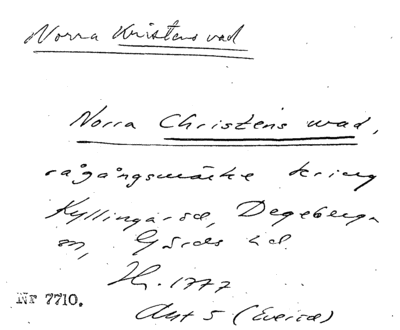 Norra Kristens vad
Norra Christens wad,
rågångsmärke kring
Kyllingaröd, Degeberga
sn, Gärds hd.
Nr 7710.
Akt 5 (Everöd)